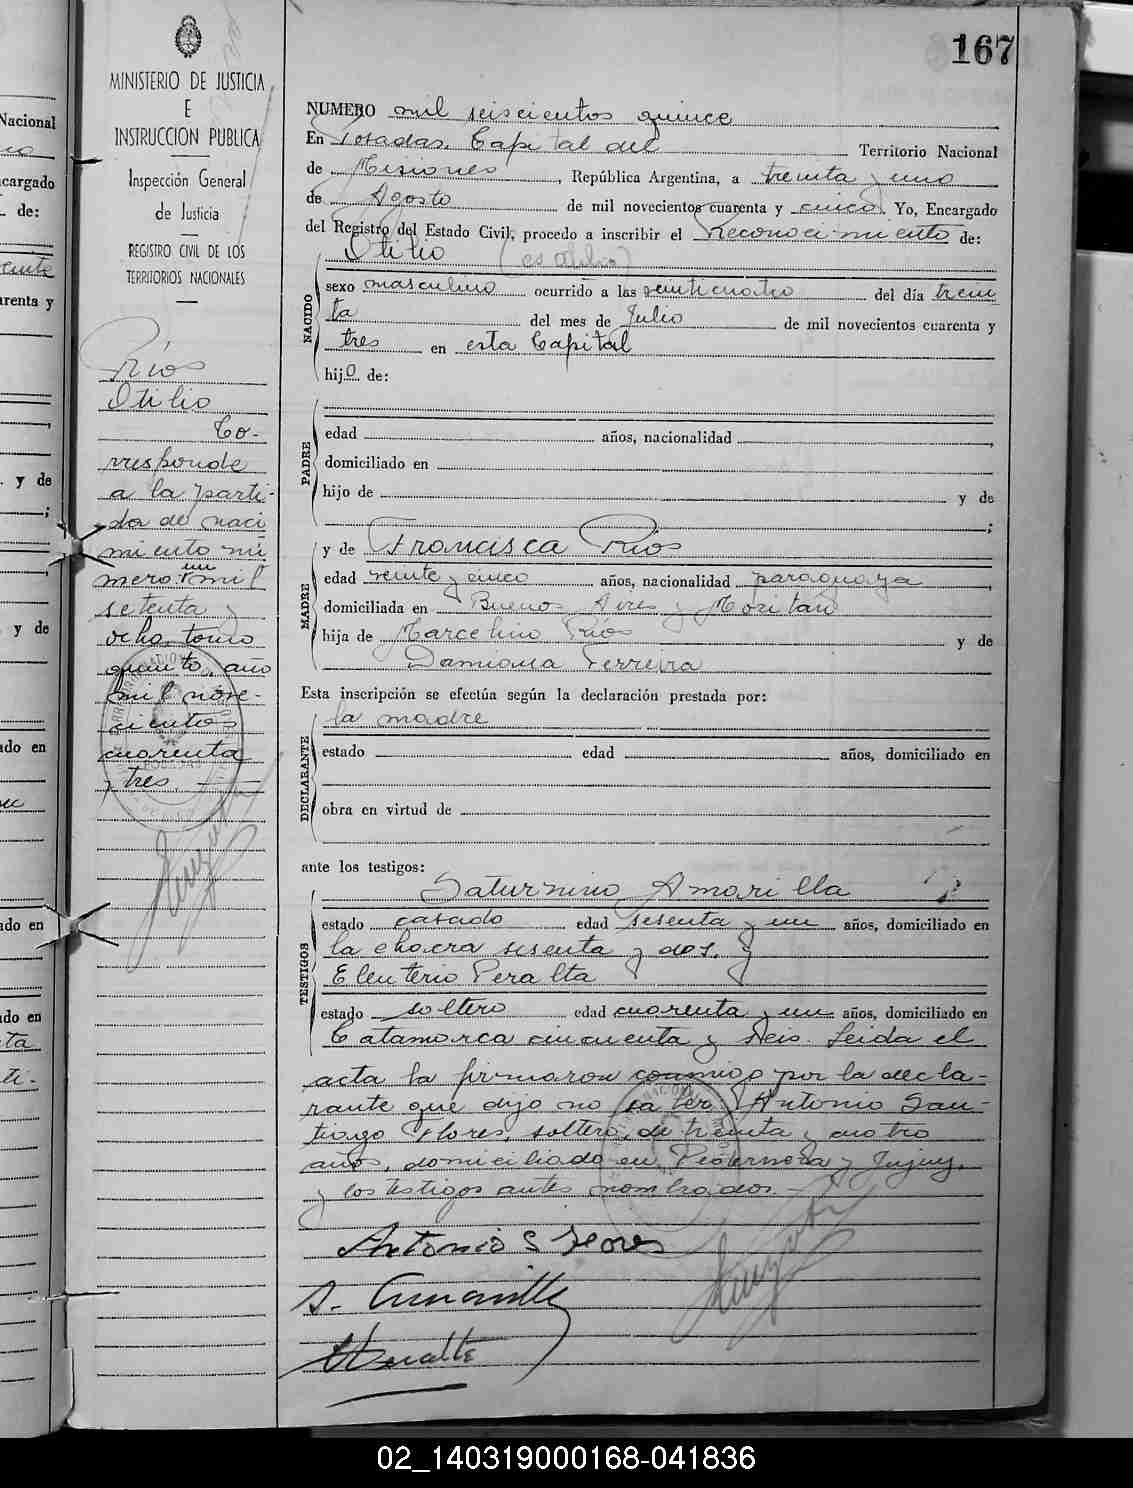 167
MINISTERIO DE JUSTICIA
E
INSTRUCCION PUBLICA
Inspección General
de Justicia
REGISTRO CIVIL DE LOS
TERRITORIOS NACIONALES
Ríos
Otilio
Co-
rresponde
a la parti-
da de naci
miento nú
mero un mil
setenta y
ocho tomo
quinto, año
mil nove-
cientos
cuarenta
y tres.
NUMERO mil seiscientos quince
En Posadas, Capital del Territorio Nacional
de Misiones, República Argentina, a treinta y uno
de Agosto de mil novecientos cuarenta y cinco. Yo, Encargado
del Registro del Estado Civil, procedo a inscribir el Reconocimiento de:
NACIDO
Otilio (es Otilio)
sexo masculino ocurrido a las veinticuatro del día trein
ta del mes de Julio de mil novecientos cuarenta y
tres en esta Capital
hijo de:
PADRE
edad años, nacionalidad ,
domiciliado en
hijo de y de
;
MADRE
y de Francisca Ríos
edad veinte y cinco años, nacionalidad paraguaya,
domiciliada en Buenos Aires y Moritan
hija de Marcelino Ríos y de
Damiana Ferreira
Esta inscripción se efectúa según la declaración prestada por:
DECLARANTE
la madre
estado edad años, domiciliado en
obra en virtud de
ante los testigos:
TESTIGOS
Saturnino Amarilla
estado casado edad sesenta y un años, domiciliado en
la chacra sesenta y dos. y
Eleuterio Peralta
estado soltero edad cuarenta y un años, domiciliado en
Catamarca cincuenta y seis. Leida el
acta la firmaron conmigo por la decla-
rante que dijo no saber Antonio San-
tiago Flores, soltero, de treinta y cuatro
años, domiciliado en Piedrabuena y Jujuy,
y los testigos antes nombrados.-
Antonio S Flores
S. Amarilla
E Peralta
Nacional
cargado
de:
arenta y
y de
;
y de
ado en
ado en
ado en
02_140319000168-041836